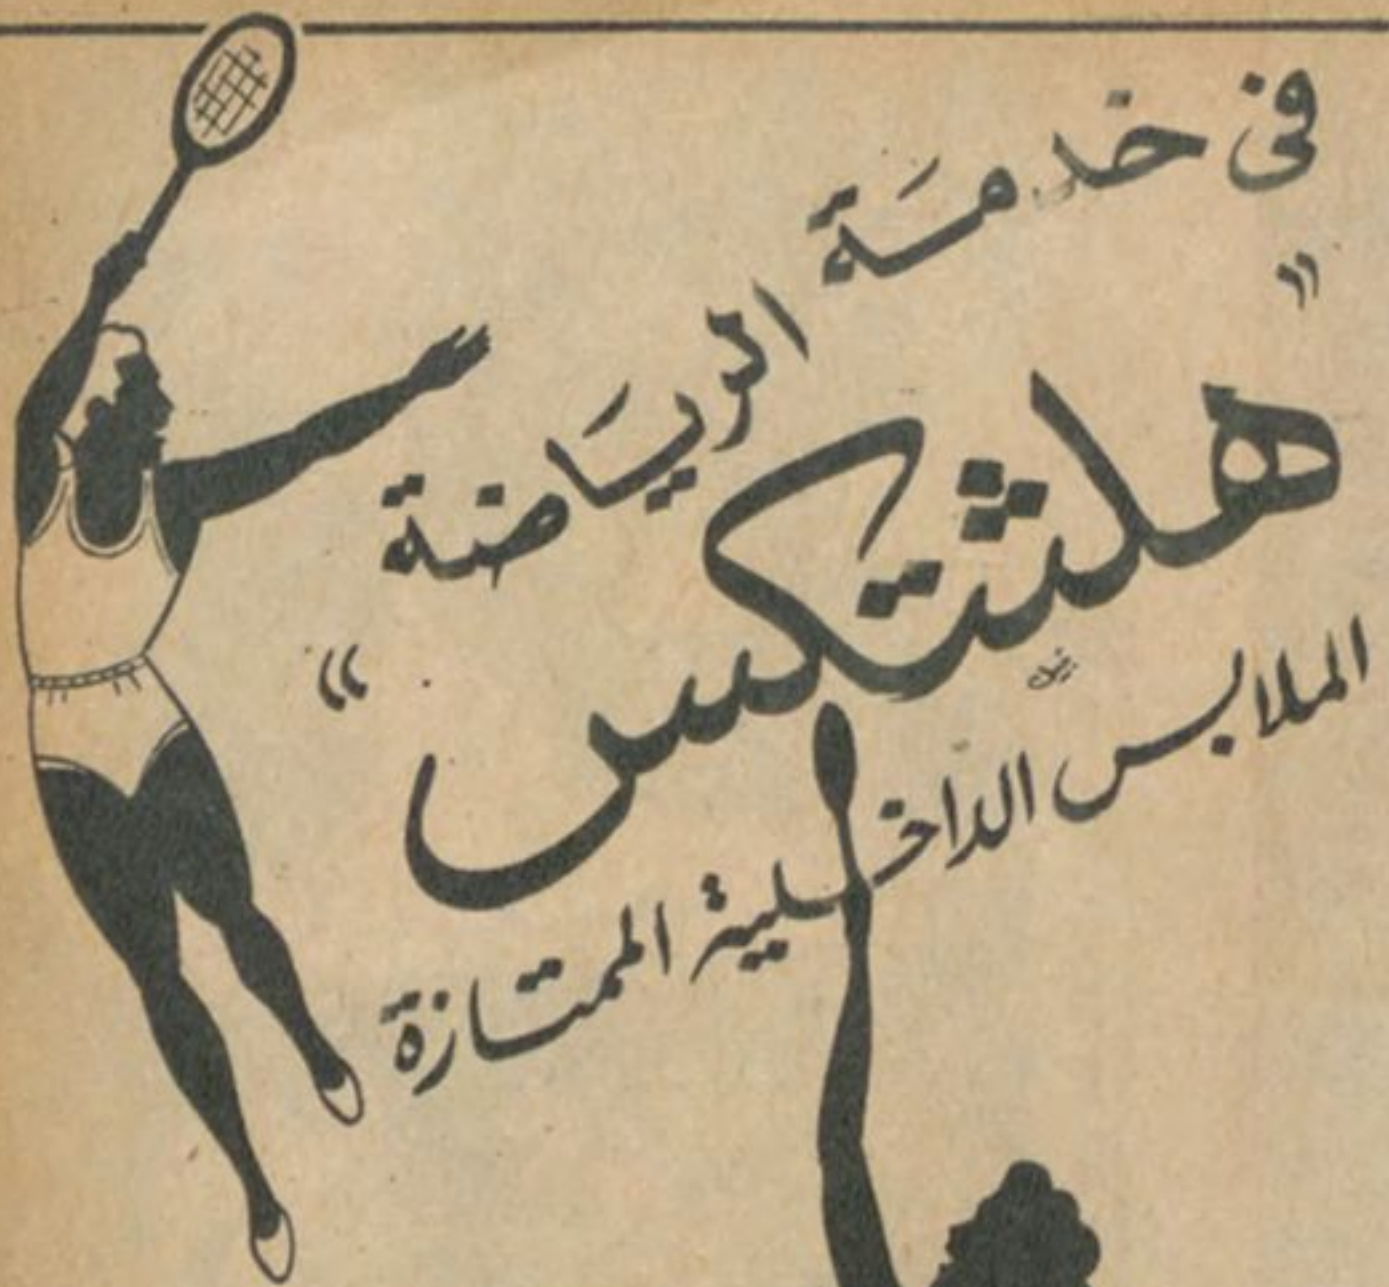 فى خدمة الرياضة
"هلثتكس"
الملابس الداخلية الممتازة